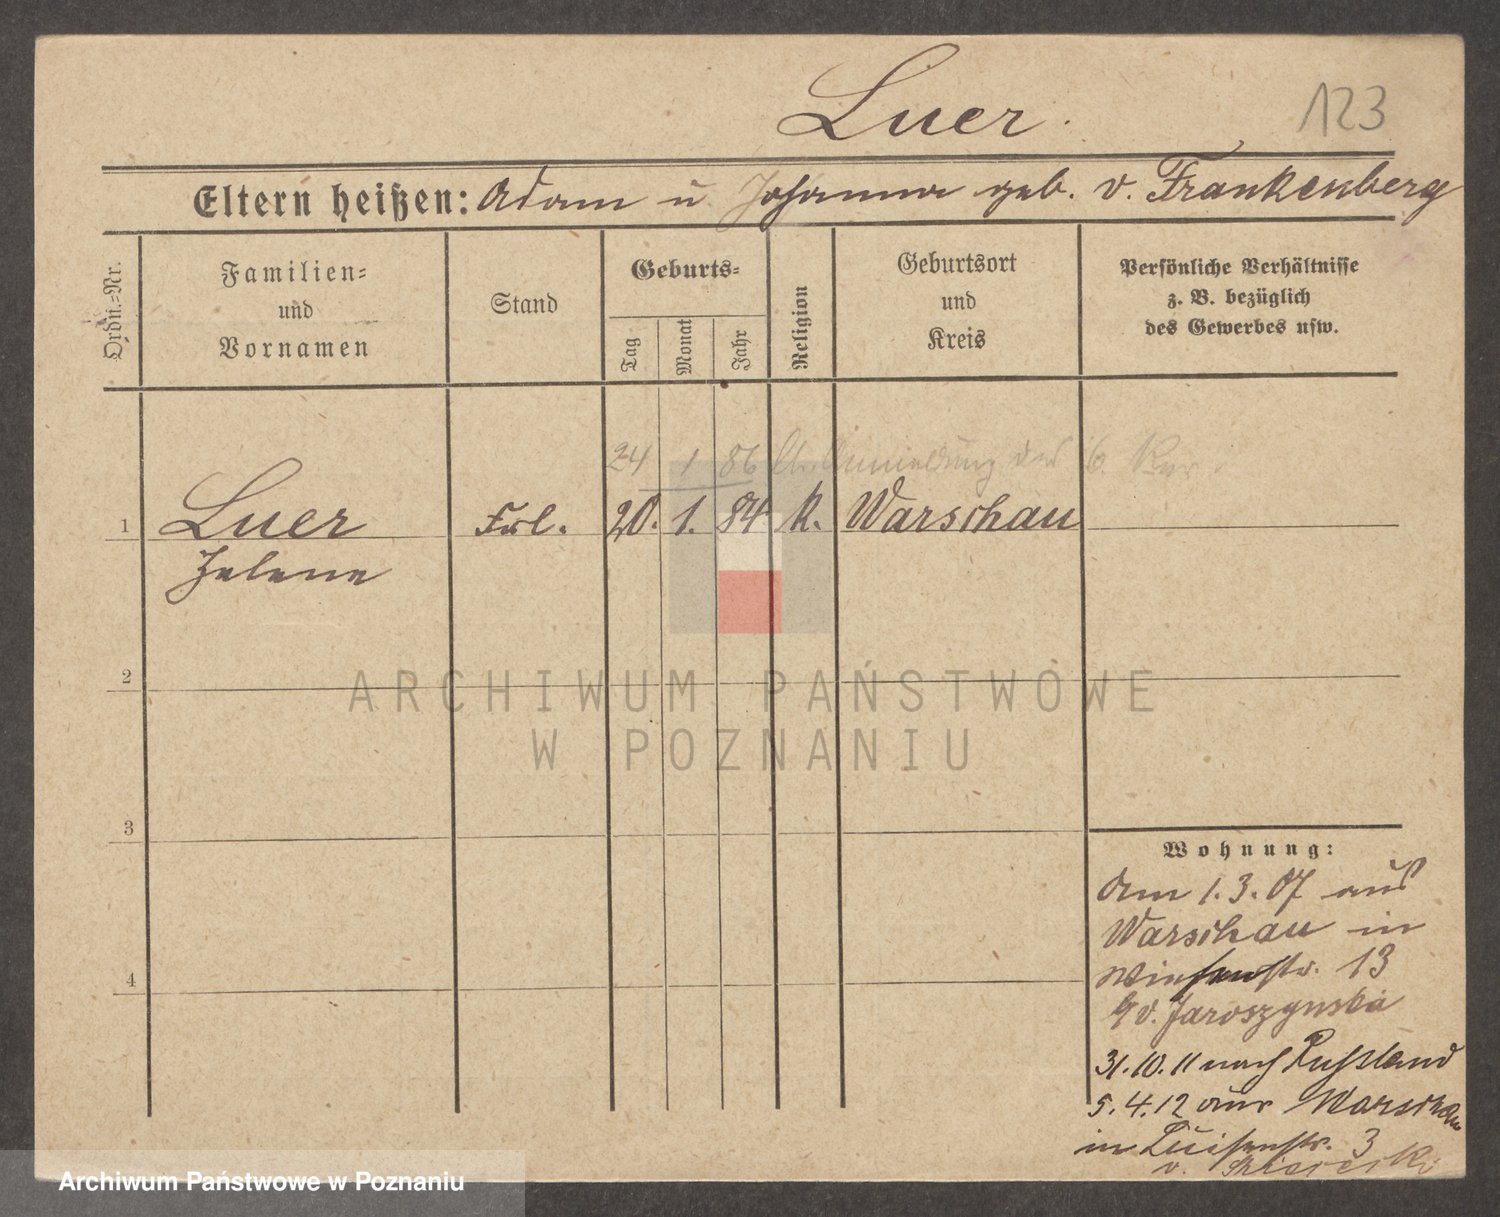 Luer.
123
Eltern heißen: Adam u Johanna geb. v. Frankenberg
Ordn.=Nr.
Familien=
und
Vornamen
Stand
Geburts=
Tag
Monat
Jahr
Religion
Geburtsort
und
Kreis
Persönliche Verhältnisse
z. B. bezüglich
des Gewerbes usw.
24 1 86 Anmeldung des 6. Rev.
1 Luer Frl. 20. 1. 84 K. Warschau
Helene
2
3
4
Wohnung:
Am 1.3.07 aus
Warschau in
Wiesenstr. 13
v. Jaroszynska
31.10.11 nach Russland
5.4.12 aus Warschau
in Luisenstr. 3
v.
ARCHIWUM PAŃSTWOWE
W POZNANIU
Archiwum Państwowe w Poznaniu